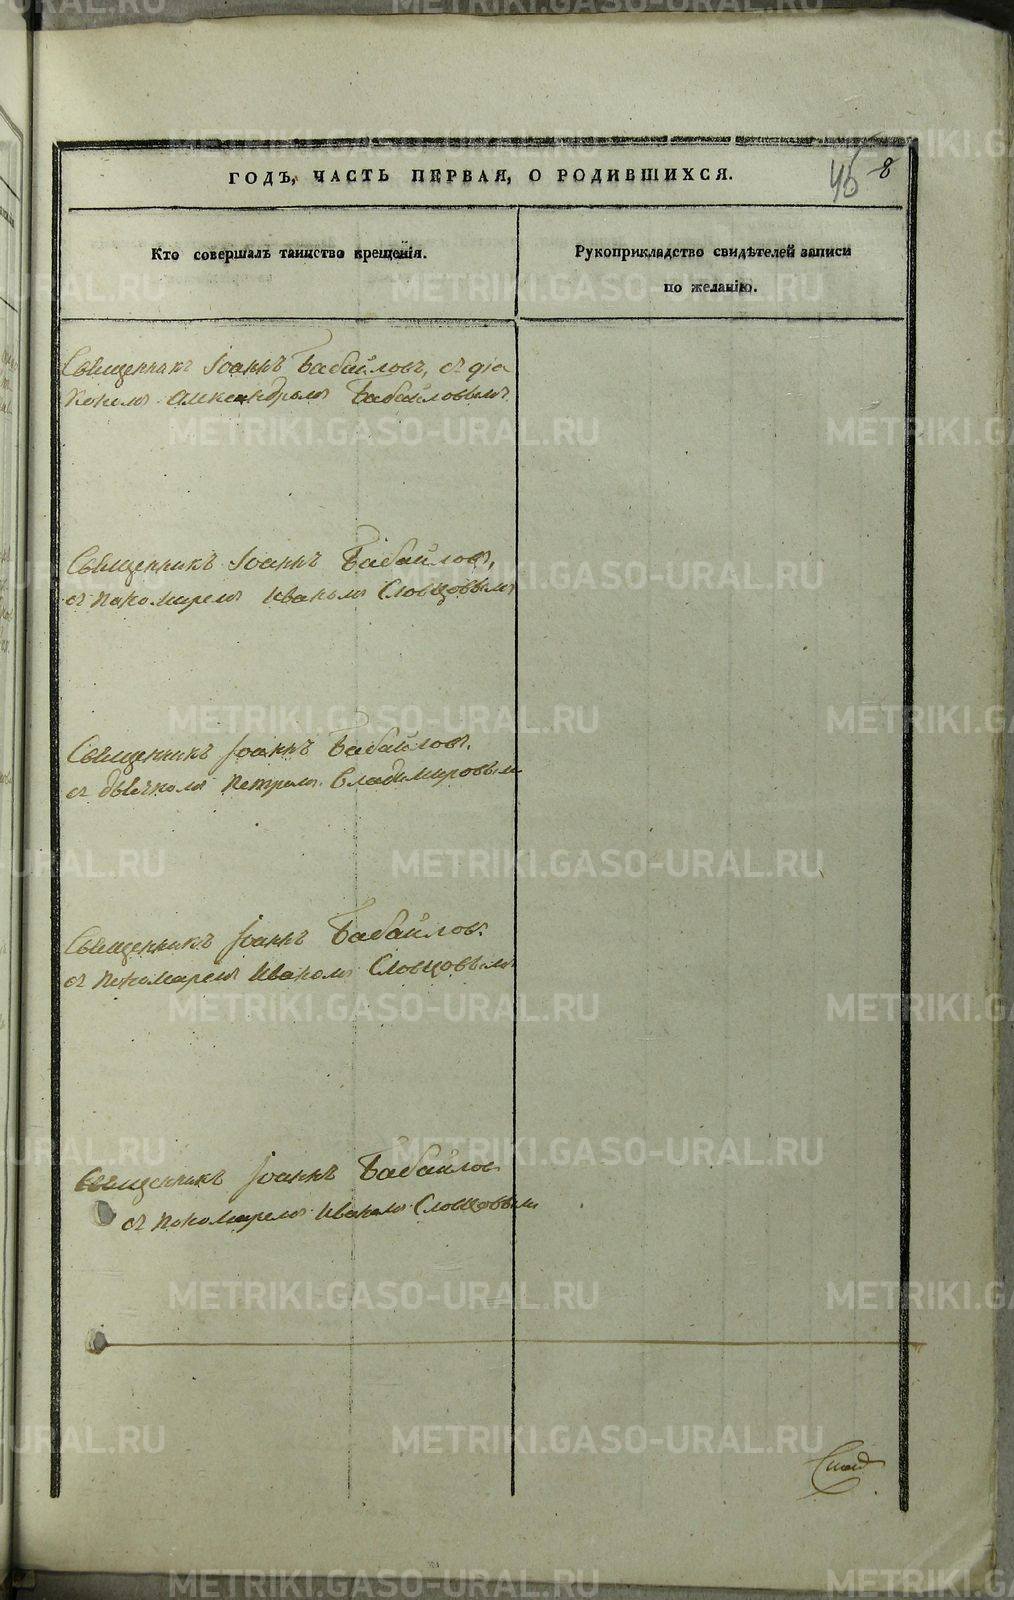 ГОДЪ, ЧАСТЬ ПЕРВАЯ, О РОДИВШИХСЯ.
45 8
Кто совершалъ таинство крещенія.
Рукоприкладство свидѣтелей записи
по желанію.
Священникъ Іоаннъ Бабайловъ, съ діа
кономъ Александромъ Бабайловымъ
Священникъ Іоаннъ Бабайловъ,
съ пономаремъ Иваномъ Словцовымъ
Священникъ Іоаннъ Бабайловъ.
съ дьячкомъ Петромъ Владимировымъ
Священникъ Іоаннъ Бабайловъ.
съ пономаремъ Иваномъ Словцовымъ
Священникъ Іоаннъ Бабайлов
съ пономаремъ Иваномъ Словцовымъ
METRIKI.GASO-URAL.RU